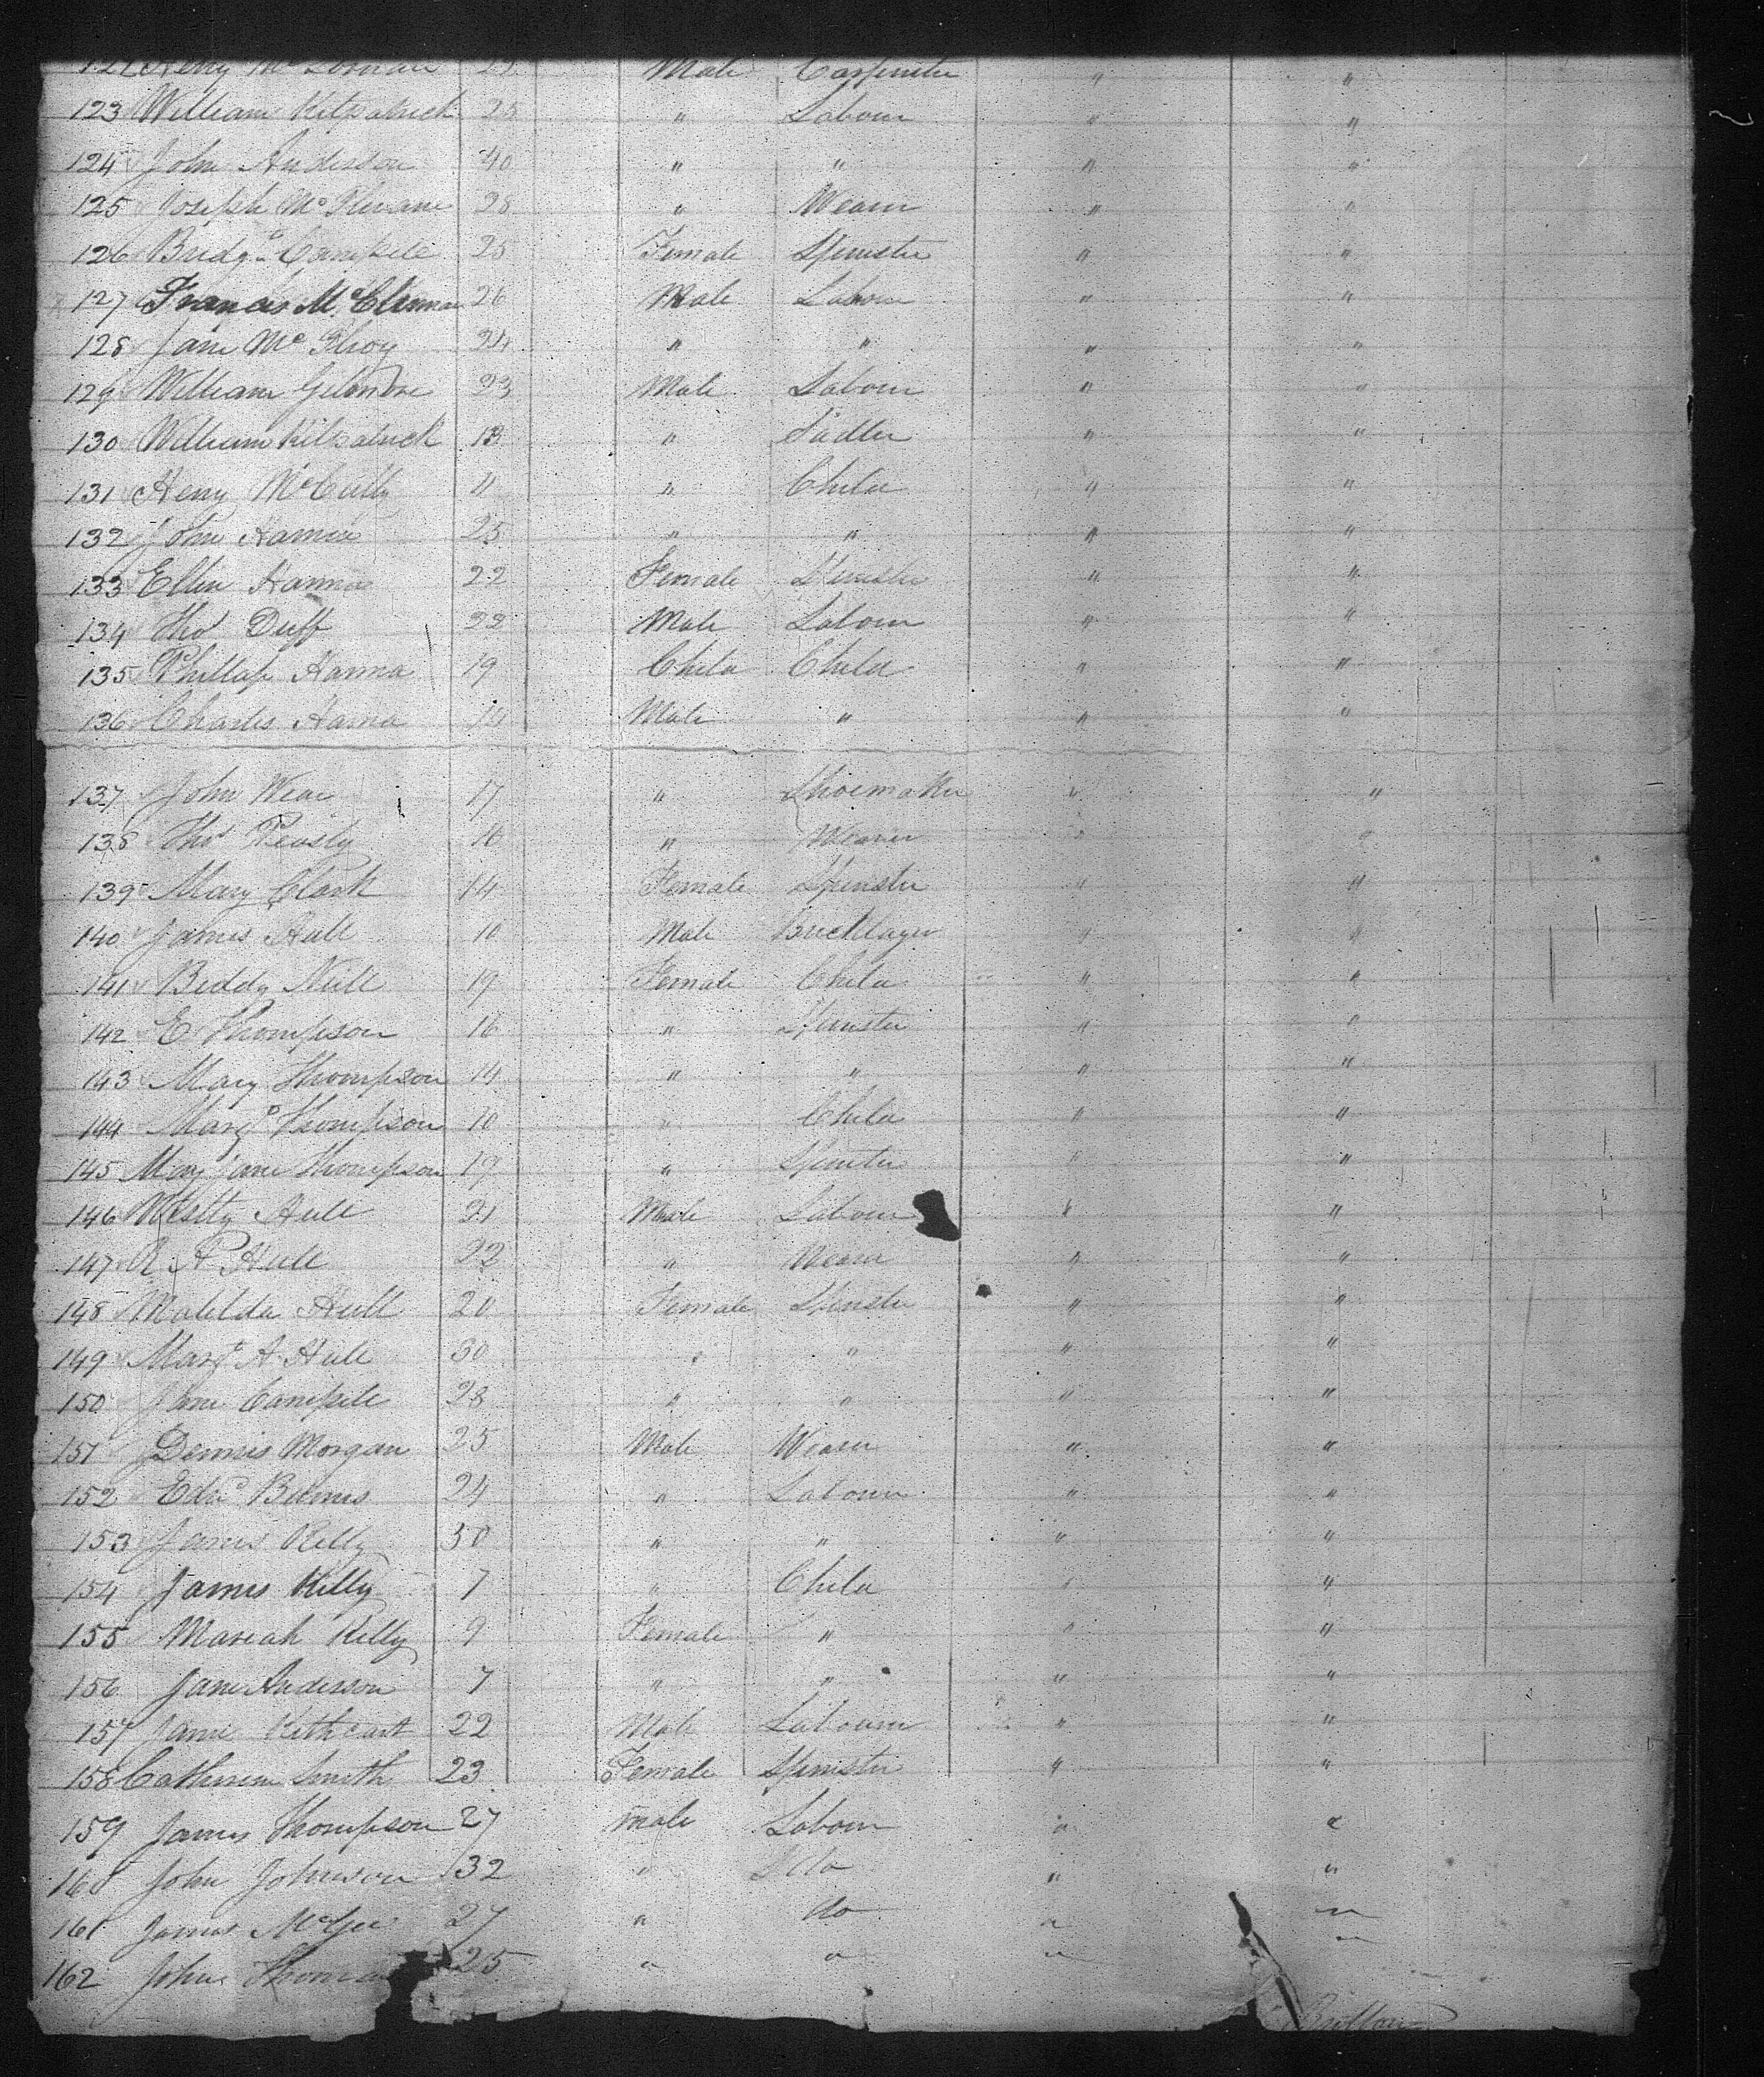 Male Carpenter " "
123 William Kilpatrick 25 " Labour " "
124 John Anderson 40 " " " "
125 Joseph 28 " Weaver " "
126 Bridgt Campbell 25 Female Spinster " "
127 Francis 26 Male Labour " "
128 Jane McIlroy 24 " " " "
129 William Gilmore 23 Male Labour " "
130 William Kilpatrick 13 " Sadler " "
131 Henry McCully 11 " Child " "
132 John Hanna 25 " " " "
133 Ellen Hanna 22 Female Spinster " "
134 Thos Duff 22 Male Labour " "
135 Phillap Hanna 19 Child Child " "
136 Charles Hanna 14 Male " " "
137 John Wear 17 " Shoemaker " "
138 Thos 16 " Weaver " "
139 Mary Clark 14 Female Spinster " "
140 James Hull 10 Male Bricklayer " "
141 Biddy 19 Female Child " "
142 E Thompson 16 " Spinster " "
143 Mary Thompson 14 " " " "
144 Margt Thompson 10 " Child " "
145 Mary Jane Thompson 19 " Spinster " "
146 Hull 21 Male Labour " "
147 Hull 22 " Weaver " "
148 Matilda Hull 20 Female Spinster " "
149 Margt A Hull 30 " " " "
150 Jane Campbell 28 " " " "
151 Dennis Morgan 25 Male Weaver " "
152 Edwd Burns 24 " Labour " "
153 James Kelly 30 " " " "
154 James Kelly 7 " Child " "
155 Mareah Kelly 9 Female " " "
156 Jane Anderson 7 " " " "
157 Kithcart 22 Male Labour " "
158 Catherine Smith 23 Female Spinster " "
159 James Thompson 27 male Labour " "
160 John Johnson 32 " do " "
161 James McGee 27 " do " "
162 John 25 " " "